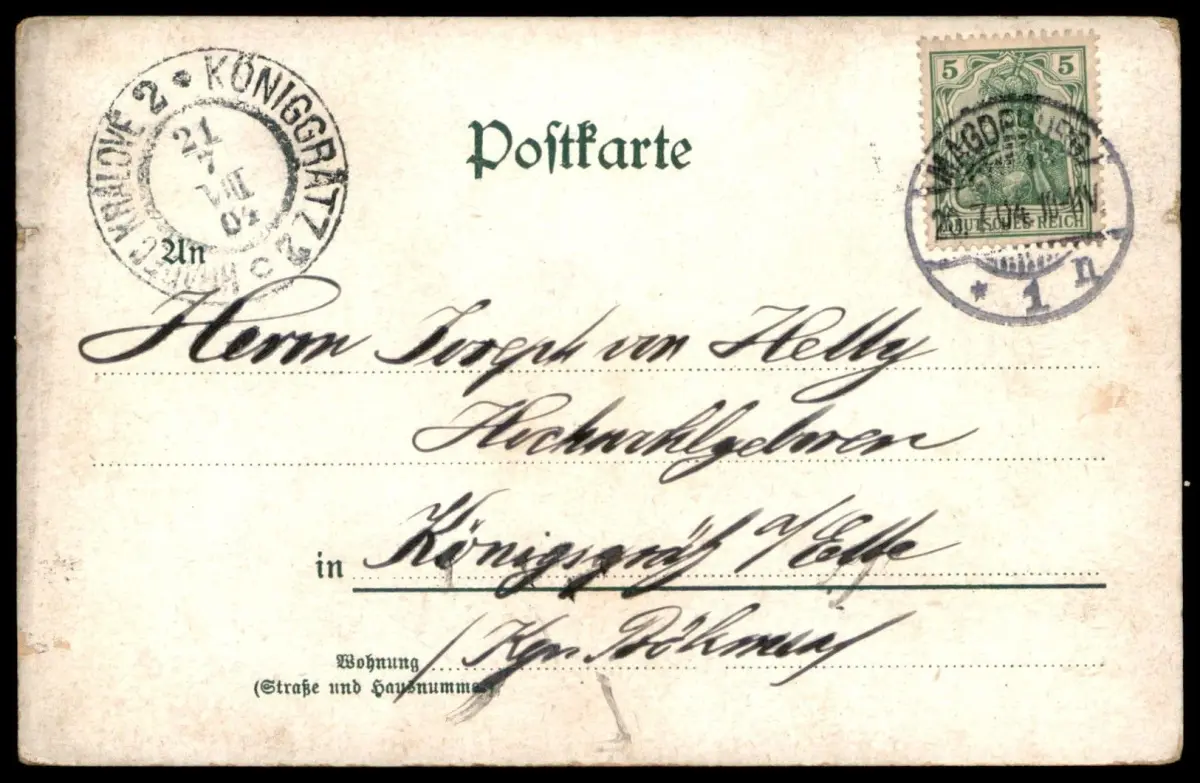 KÖNIGGRÄTZ 2
HRADEC KRÁLOVÉ 2
21
7
VII
04
c
Postkarte
5 5
DEUTSCHES REICH
MAGDEBURG
7.04. 11-12V.
* 1 n
An
Herrn Joseph von Helly
Hochwohlgeboren
in Königsgrätz a/Elbe
/Kgr. Böhmen/
Wohnung
(Straße und Hausnummer)